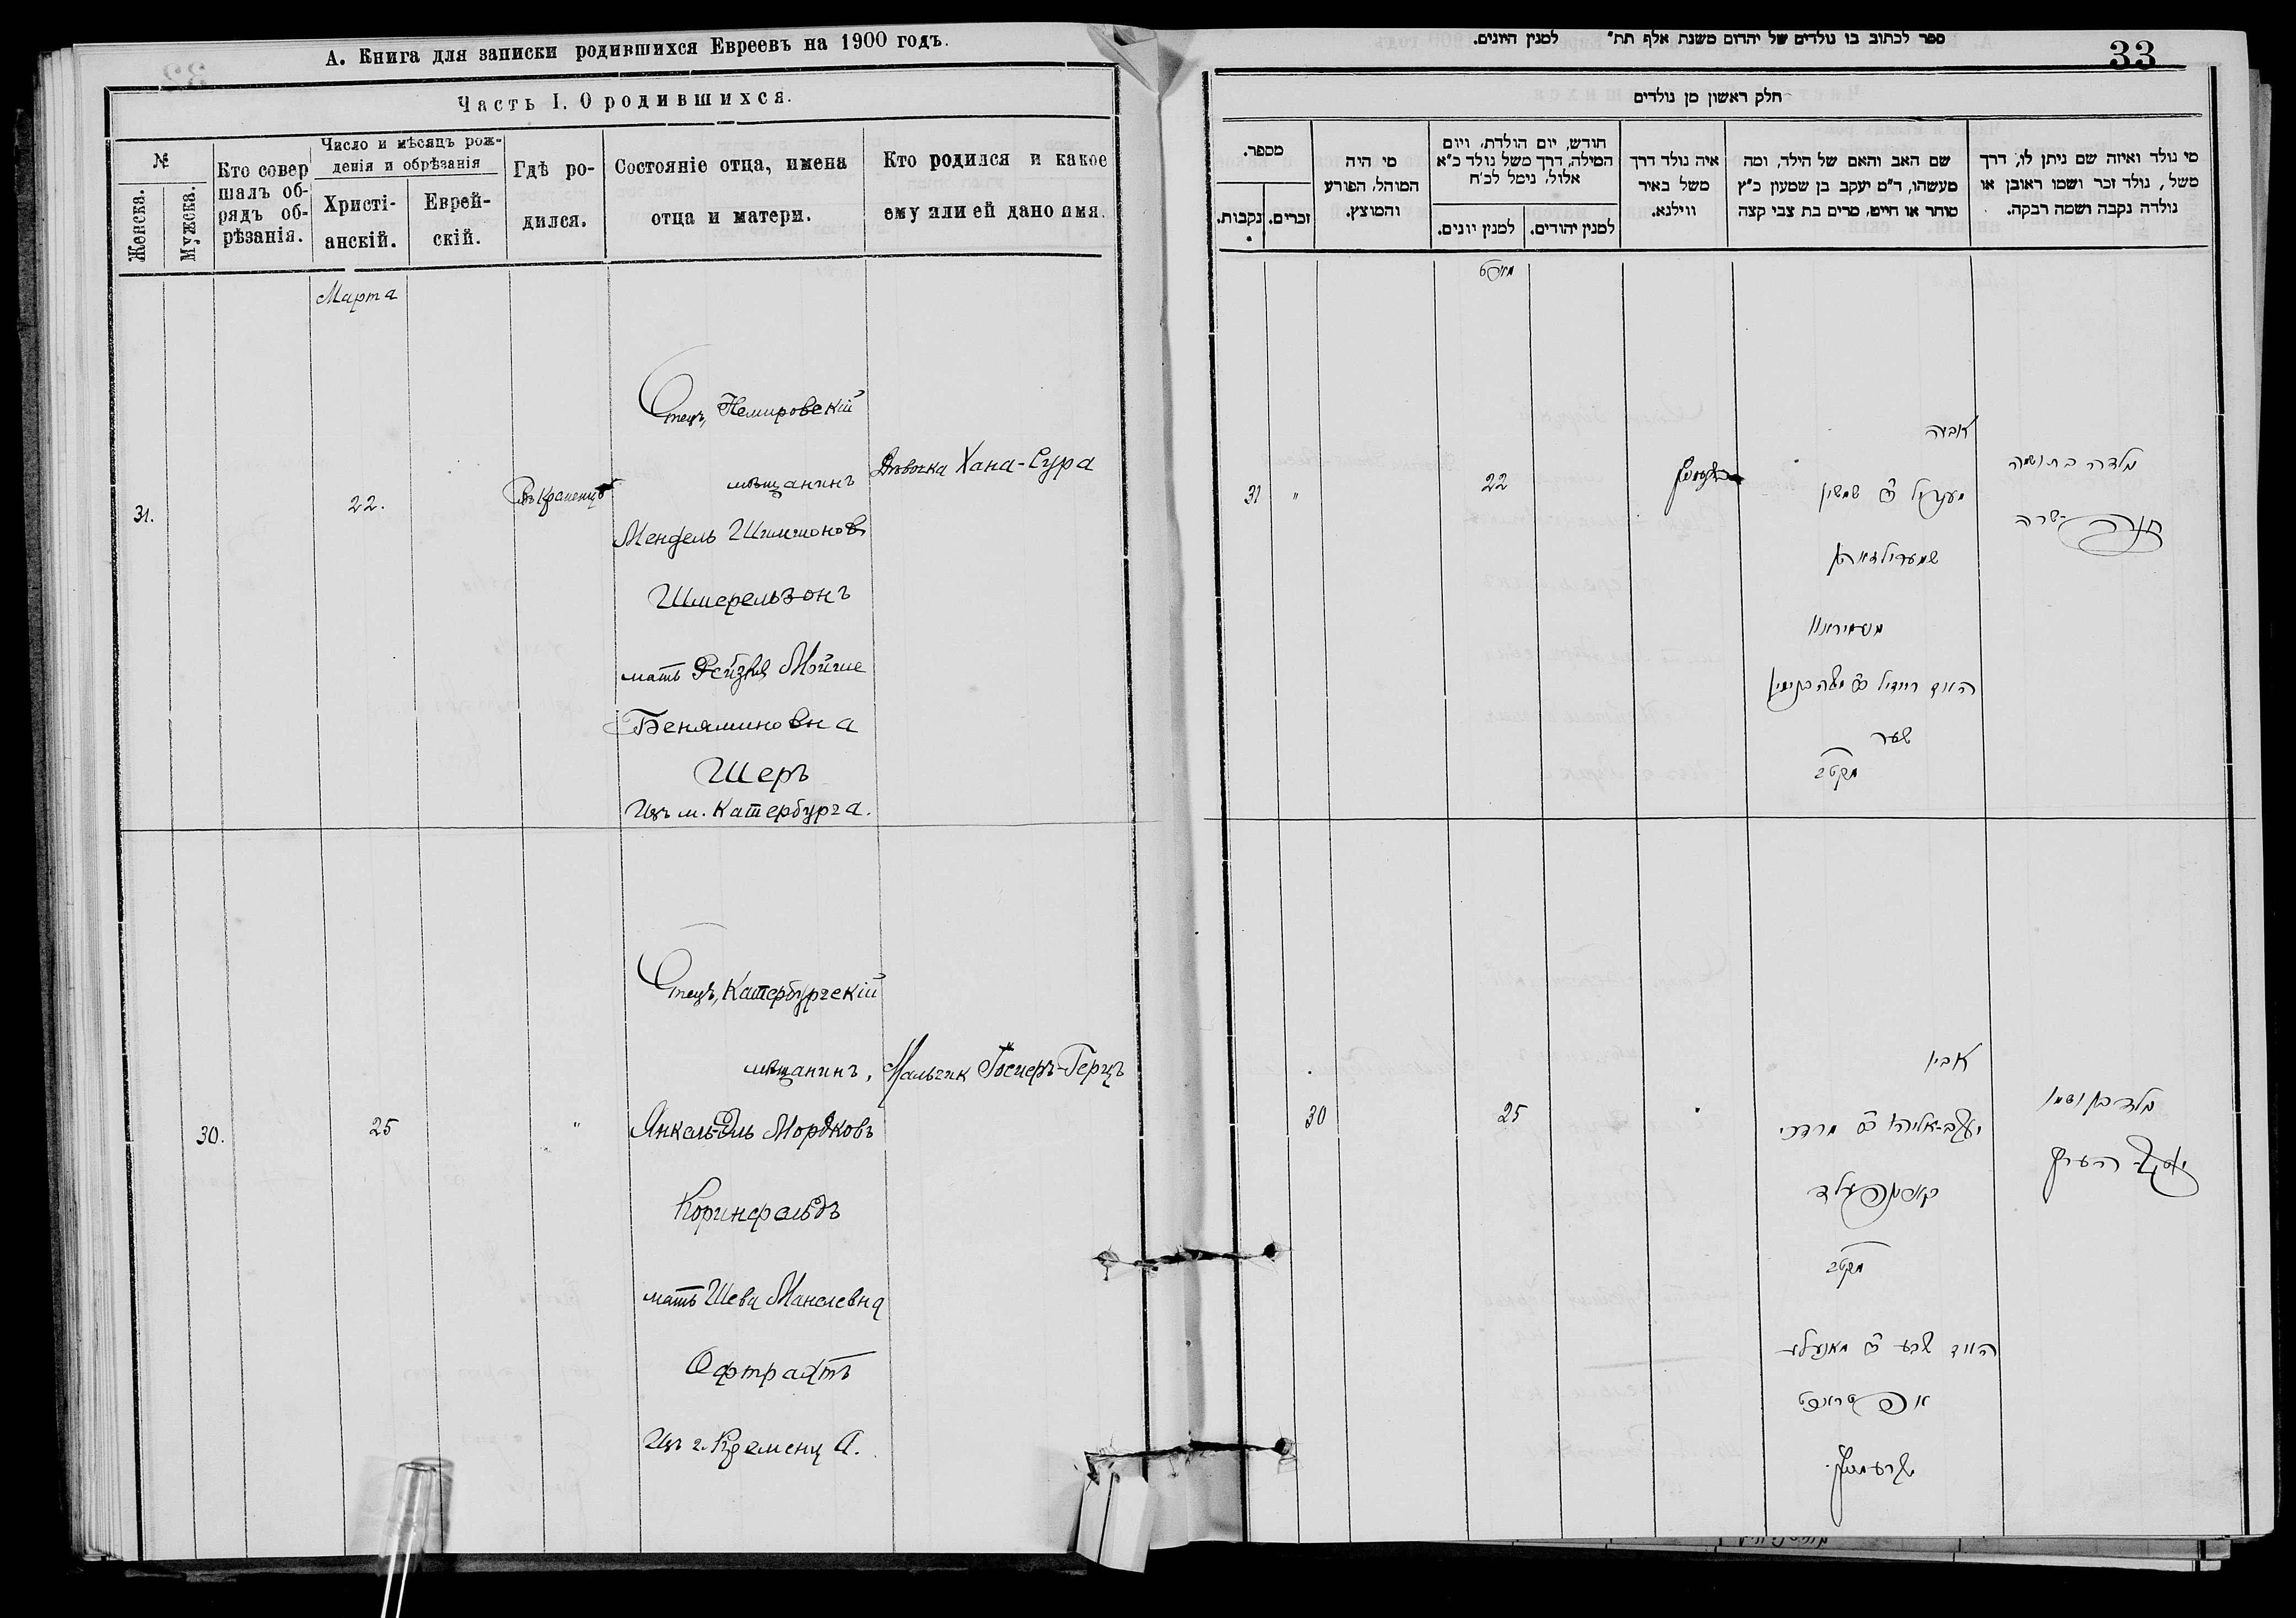 А. Книга для записки родившихся Евреевъ на 1900 годъ.
Часть I. О родившихся.
№
Женска.
Мужска.
Кто совер
шалъ об-
рядъ об-
рѣзанія.
Число и мѣсяцъ рож-
денія и обрѣзанія
Христі-
анскій.
Еврей-
скій.
Гдѣ ро-
дился.
Состояніе отца, имена
отца и матери.
Кто родился и какое
ему или ей дано имя.
Марта
31.
22.
Въ Кременцѣ
Отецъ, Немировскій
мѣщанинъ
Мендель Шимшоновъ
Шмерельзонъ
мать Рейзля Мойше
Беняминовна
Шеръ
Изъ м. Катербурга.
Дѣвочка Хана-Сура
30.
25
"
Отецъ, Катербургскій
мѣщанинъ,
Янкель-Эль Мордковъ
Коринфельдъ
мать Шева Манелевна
Офтрахтъ
Изъ г. Кременца.
Мальчик
ספר לכתוב בו נולדים של יהדום משנת אלף תת״ למנין היונים.
33
חלק ראשון מן נולדים
מספר.
נקבות.
זכרים.
מי היה
המוהל, הפורע
והמוצץ.
חודש, יום הולדת, ויום
המילה, דרך משל נולד כ״א
אלול, נימל לכ״ח
למנין יונים.
למנין יהודים.
איה נולד דרך
משל באיר
ווילנא.
שם האב והאם של הילד, ומה
מעשהו, ד״מ יעקב בן שמעון כ״ץ
סוחר או חייט, מרים בת צבי קצה
מי נולד ואיזה שם ניתן לו, דרך
משל, נולד זכר ושמו ראובן או
נולדה נקבה ושמה רבקה.
31
"
22
אביה
מענדיל ב״ר שמשון
שמערילזאהן
הורד רייזיל ב״ר משה בנימין
שער
נולדה בת ושמה
חנה-שרה
30
25
אביו
יעקב-אליהו ב״ר מרדכי
קארנפעלד
הורד שבע ב״ר מאנעלע
אפטראכט
נולד בן ושמו